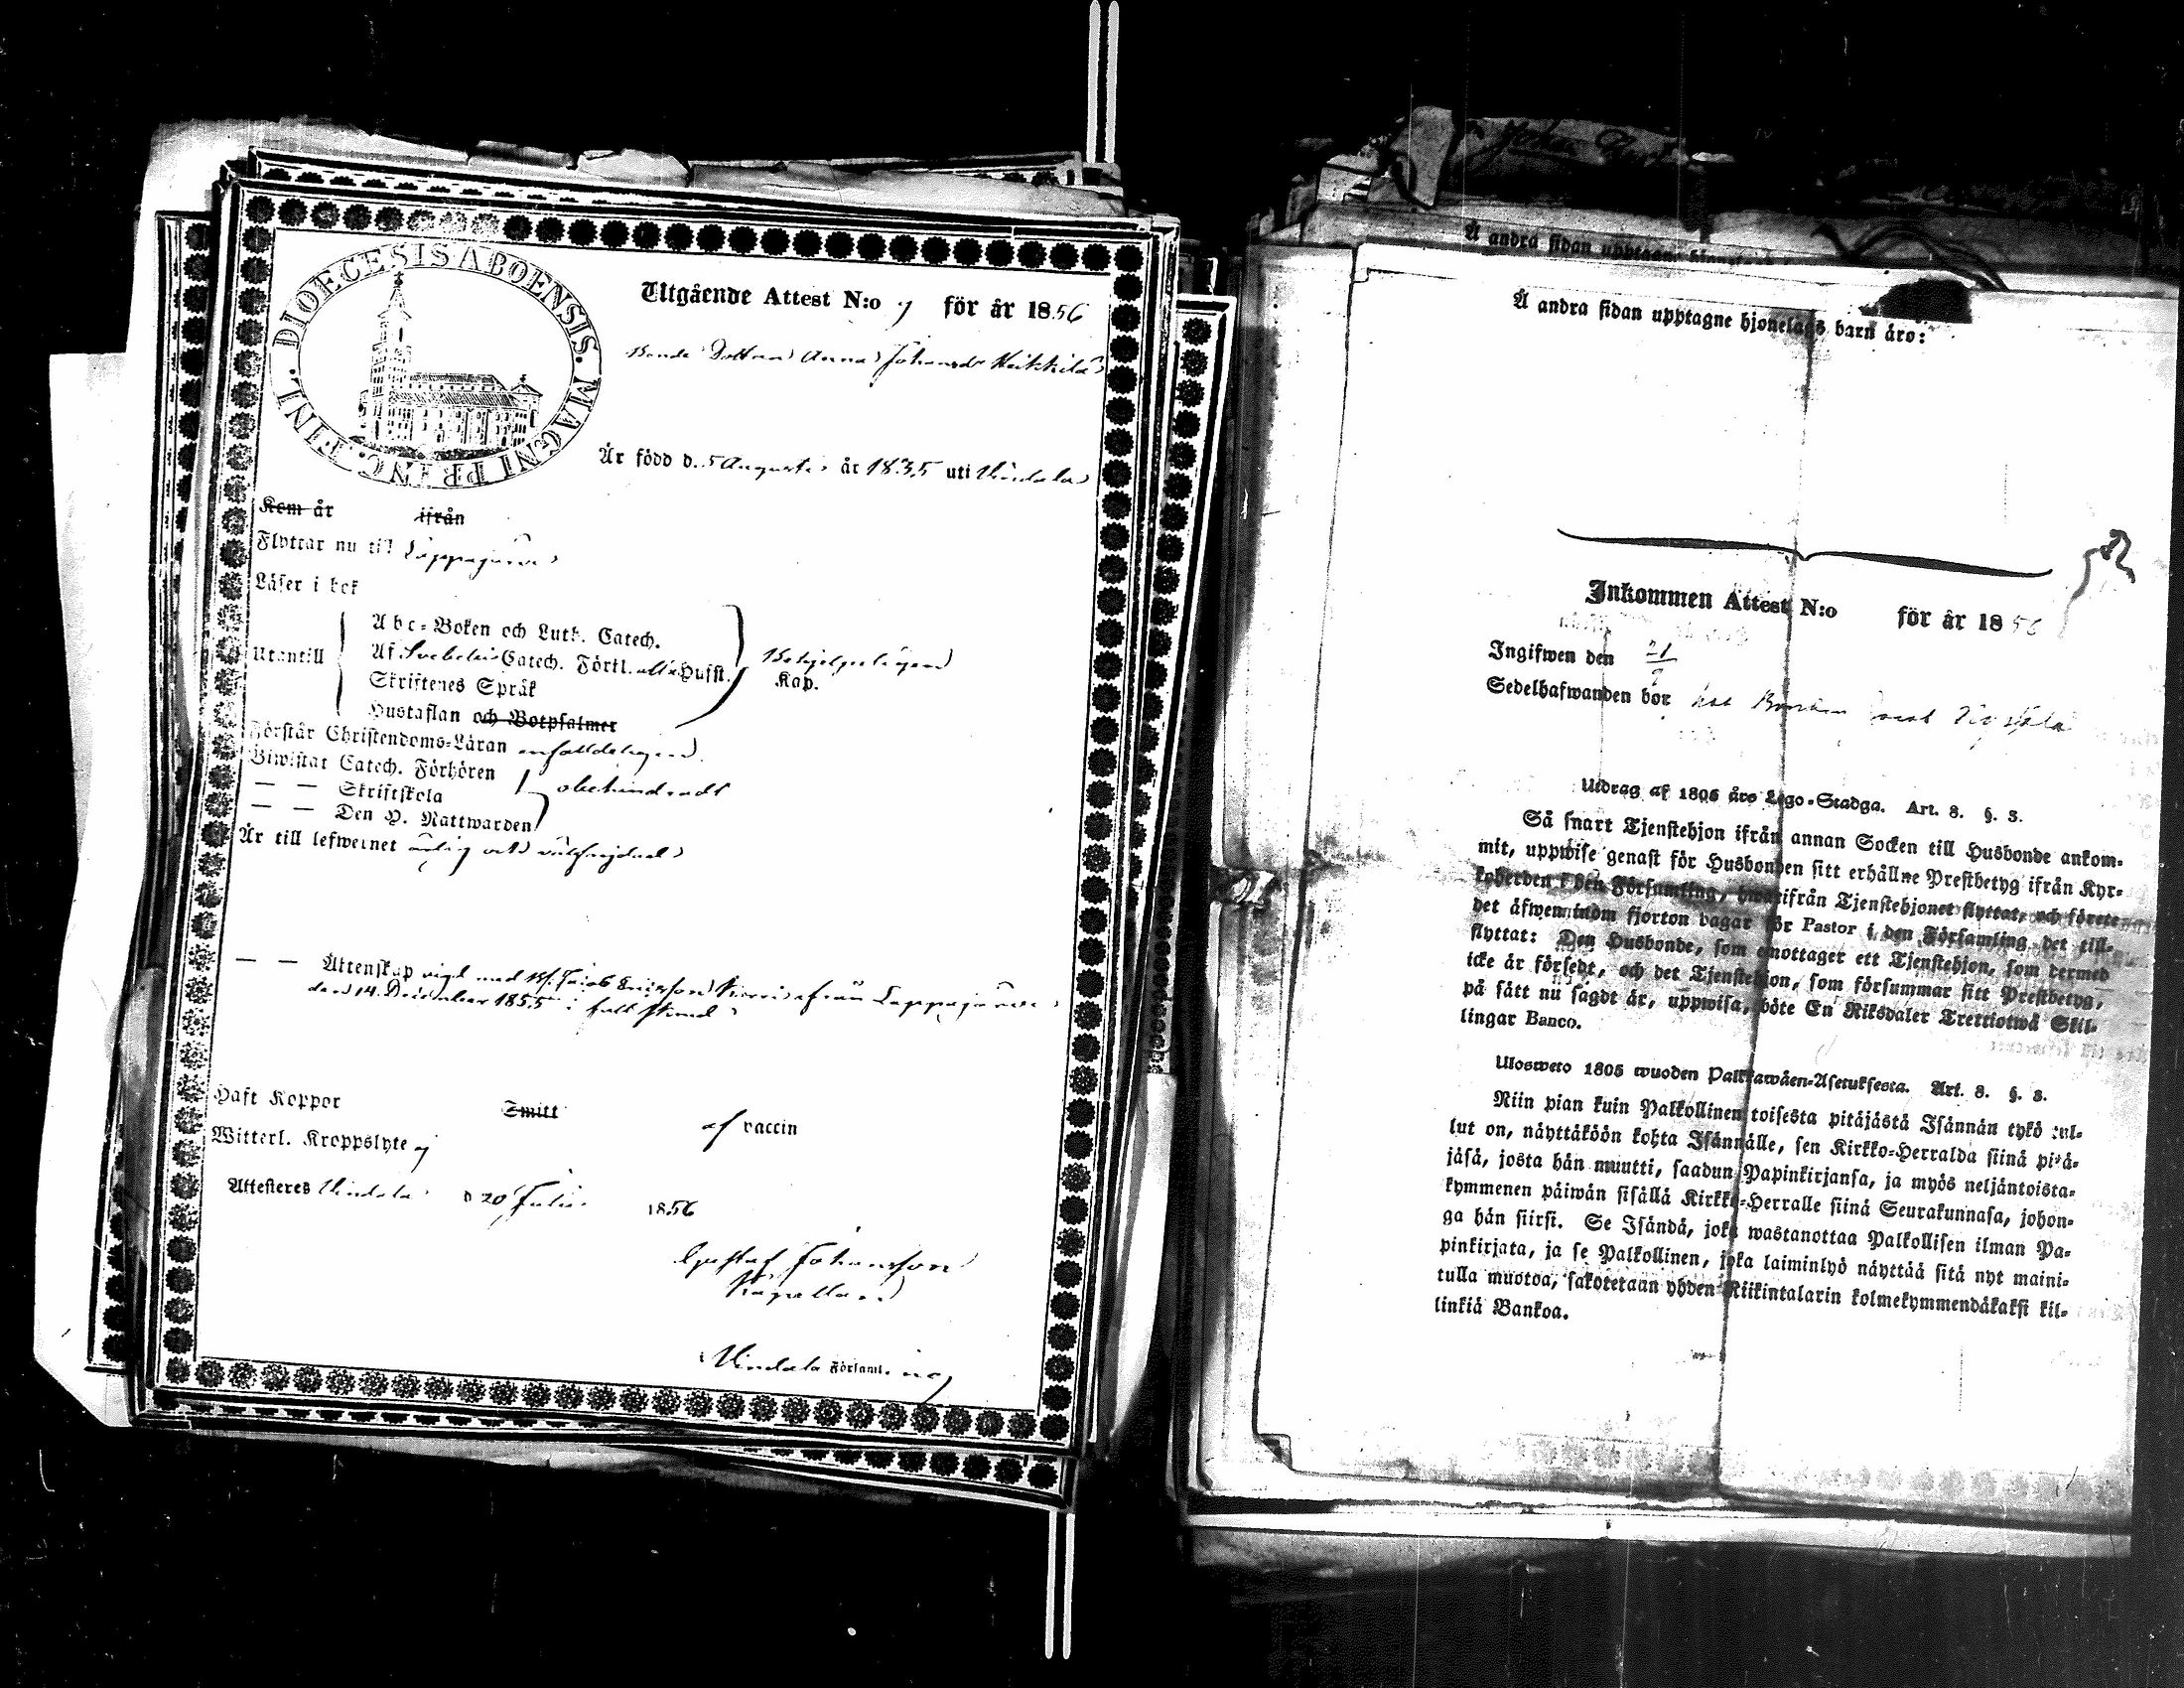 DIOECESIS ABOENSIS. MAGNI PRINC. FINL.
Utgående Attest N:o 9 för år 1856
Bonde Dottren Anna Johansdr Heikkilä
Är född d. 5 Augusti år 1835 uti Vindala
Kom år ifrån
Flyttar nu till Lappajärvi
Läser i bok
Utantill
Abc-Boken och Luth. Catech.
Af Svebelii Catech. Förkl. alla Hufst.
Skriftenes Språk
Hustaflan och Botpsalmer
Behjelpeligen
Kap.
Förstår Christendoms-Läran enfaldeligen
Biwistat Catech. Förhören
— — Skriftskola
— — Den H. Nattwarden
obehindradt
Är till lefwernet ärlig och välfrejdad
— — Äktenskap vigd med Jakob Ericsson ifrån Lappajärvi
den 14 December 1855
Haft Koppor Smitt af vaccin
Witterl. Kroppslyte ej
Attesteres Vindala d 20 Julii 1856
Gustaf Johansson
Kapellan
Vindala Församling
Å andra sidan upptagne
Å andra sidan upptagne hjonelags barn äro:
Inkommen Attest N:o för år 1856
Ingifwen den 21/9
Sedelhafwanden bor hos Bonden
Utdrag af 1805 års Lego-Stadga. Art. 8. §. 3.
Så snart Tjenstehjon ifrån annan Socken till Husbonde ankom-
mit, uppwise genast för Husbonden sitt erhållne Prestbetyg ifrån Kyr-
koherden i den Församling, hwarifrån Tjenstehjonet flyttat, och förete
det äfwen inom fjorton dagar för Pastor i den Församling det till-
flyttat: Den Husbonde, som emottager ett Tjenstehjon, som dermed
icke är försedt, och det Tjenstehjon, som försummar sitt Prestbetyg,
på sätt nu sagdt är, uppwisa, böte En Riksdaler Trettiotwå Skil-
lingar Banco.
Ulosweto 1805 wuoden Palkkawäen-Asetuksesta. Art. 8. §. 3.
Niin pian kuin Palkollinen toisesta pitäjästä Isännän tykö tul-
lut on, näyttäköön kohta Isännälle, sen Kirkko-Herralda siinä pitä-
jäsä, josta hän muutti, saadun Papinkirjansa, ja myös neljäntoista-
kymmenen päiwän sisällä Kirkko-Herralle siinä Seurakunnasa, johon-
ga hän siirsi. Se Isändä, joka wastanottaa Palkollisen ilman Pa-
pinkirjata, ja se Palkollinen, joka laiminlyö näyttää sitä nyt maini-
tulla muotoa, sakotetaan yhden Riikintalarin kolmekymmendäkaksi kil-
linkiä Bankoa.